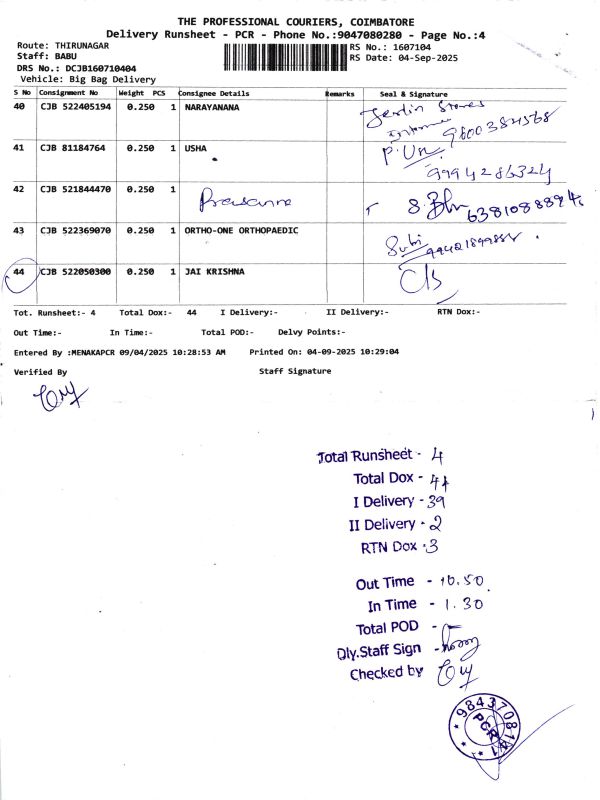 THE PROFESSIONAL COURIERS, COIMBATORE
Delivery Runsheet - PCR - Phone No.:9047080280 - Page No.:4
Route: THIRUNAGAR
RS No.: 1607104
Staff: BABU
RS Date: 04-Sep-2025
DRS No.: DCJB160710404
Vehicle: Big Bag Delivery
S No Consignment No Weight PCS Consignee Details Remarks Seal & Signature
40 CJB 522405194 0.250 1 NARAYANANA
9600384568
41 CJB 81184764 0.250 1 USHA
9994286324
42 CJB 521844470 0.250 1 Prasanna
43 CJB 522369070 0.250 1 ORTHO-ONE ORTHOPAEDIC
44 CJB 522050300 0.250 1 JAI KRISHNA
Tot. Runsheet:- 4 Total Dox:- 44 I Delivery:- II Delivery:- RTN Dox:-
Out Time:- In Time:- Total POD:- Delvy Points:-
Entered By :MENAKAPCR 09/04/2025 10:28:53 AM Printed On: 04-09-2025 10:29:04
Verified By Staff Signature
Total Runsheet - 4
Total Dox - 44
I Delivery - 39
II Delivery - 2
RTN Dox - 3
Out Time - 10.50
In Time - 1.30
Total POD -
Dly.Staff Sign -
Checked by
PCR